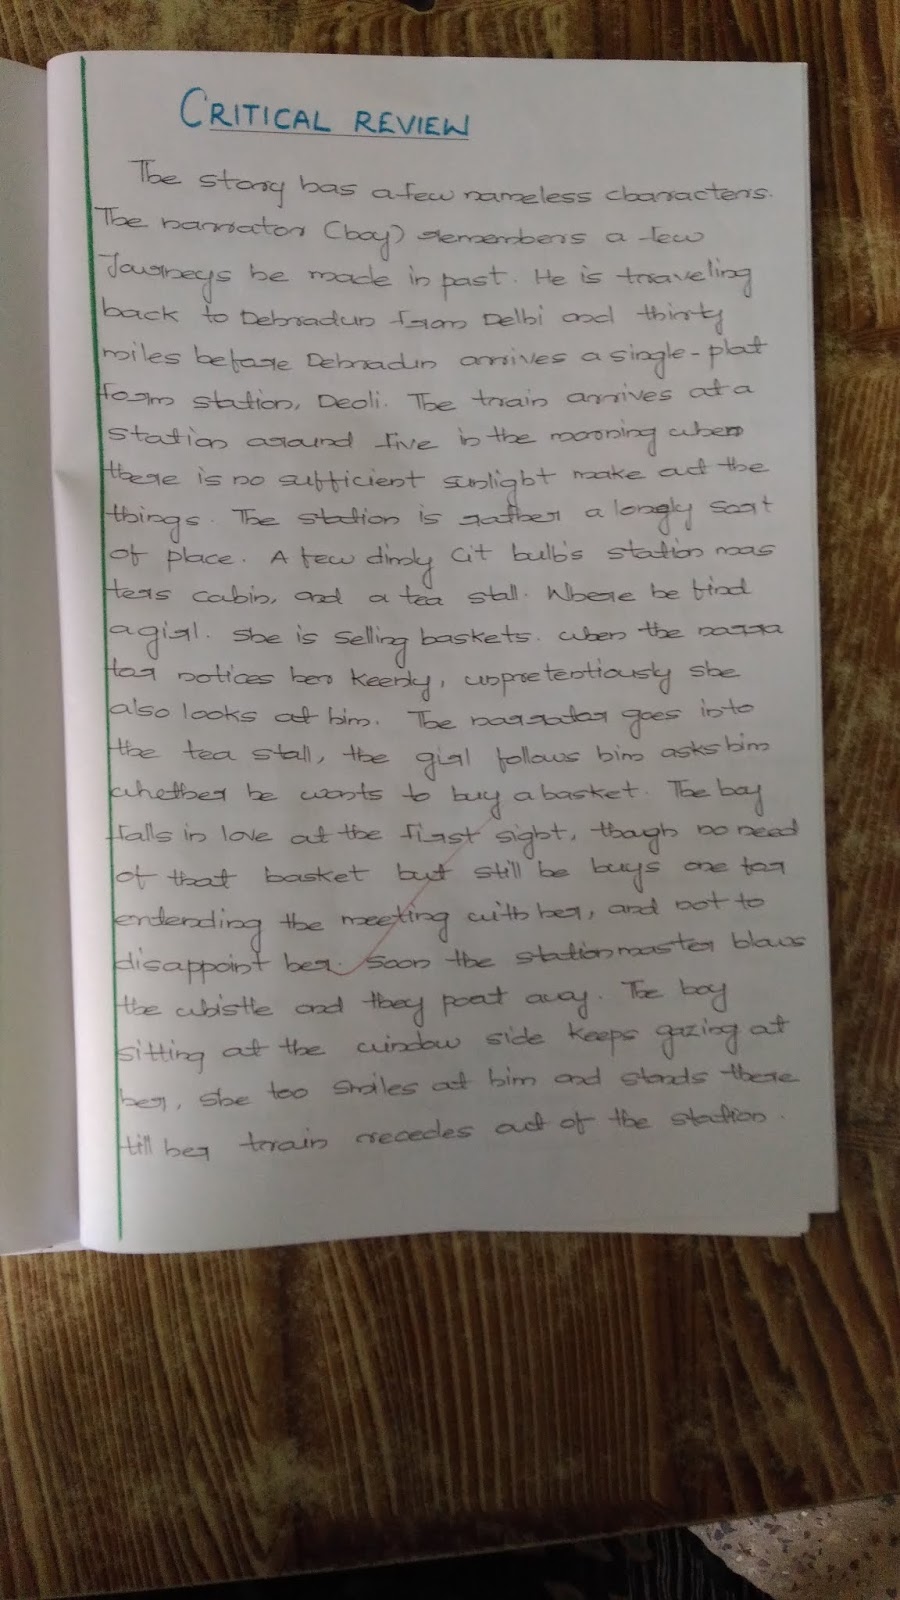 CRITICAL REVIEW
The story has a few nameless characters.
The narrator (boy) remembers a few
Journeys he made in past. He is traveling
back to Dehradun from Delhi and thirty
miles before Dehradun arrives a single-plat
form station, Deoli. The train arrives at a
station around five in the morning when
there is no sufficient sunlight make out the
things. The station is rather a longly sort
of place. A few dimly Cit bulb's station mas
ters cabin, and a tea stall. Where he find
a girl. She is selling baskets. when the narra
tor notices her keenly, unpretentiously she
also looks at him. The narrator goes into
the tea stall, the girl follows him asks him
whether he wants to buy a basket. The boy
falls in love at the first sight, though no need
of that basket but still he buys one for
endending the meeting with her, and not to
disappoint her. Soon the station master blows
the whistle and they poat away. The boy
sitting at the window side keeps gazing at
her, she too smiles at him and stands there
till her train recedes out of the station.